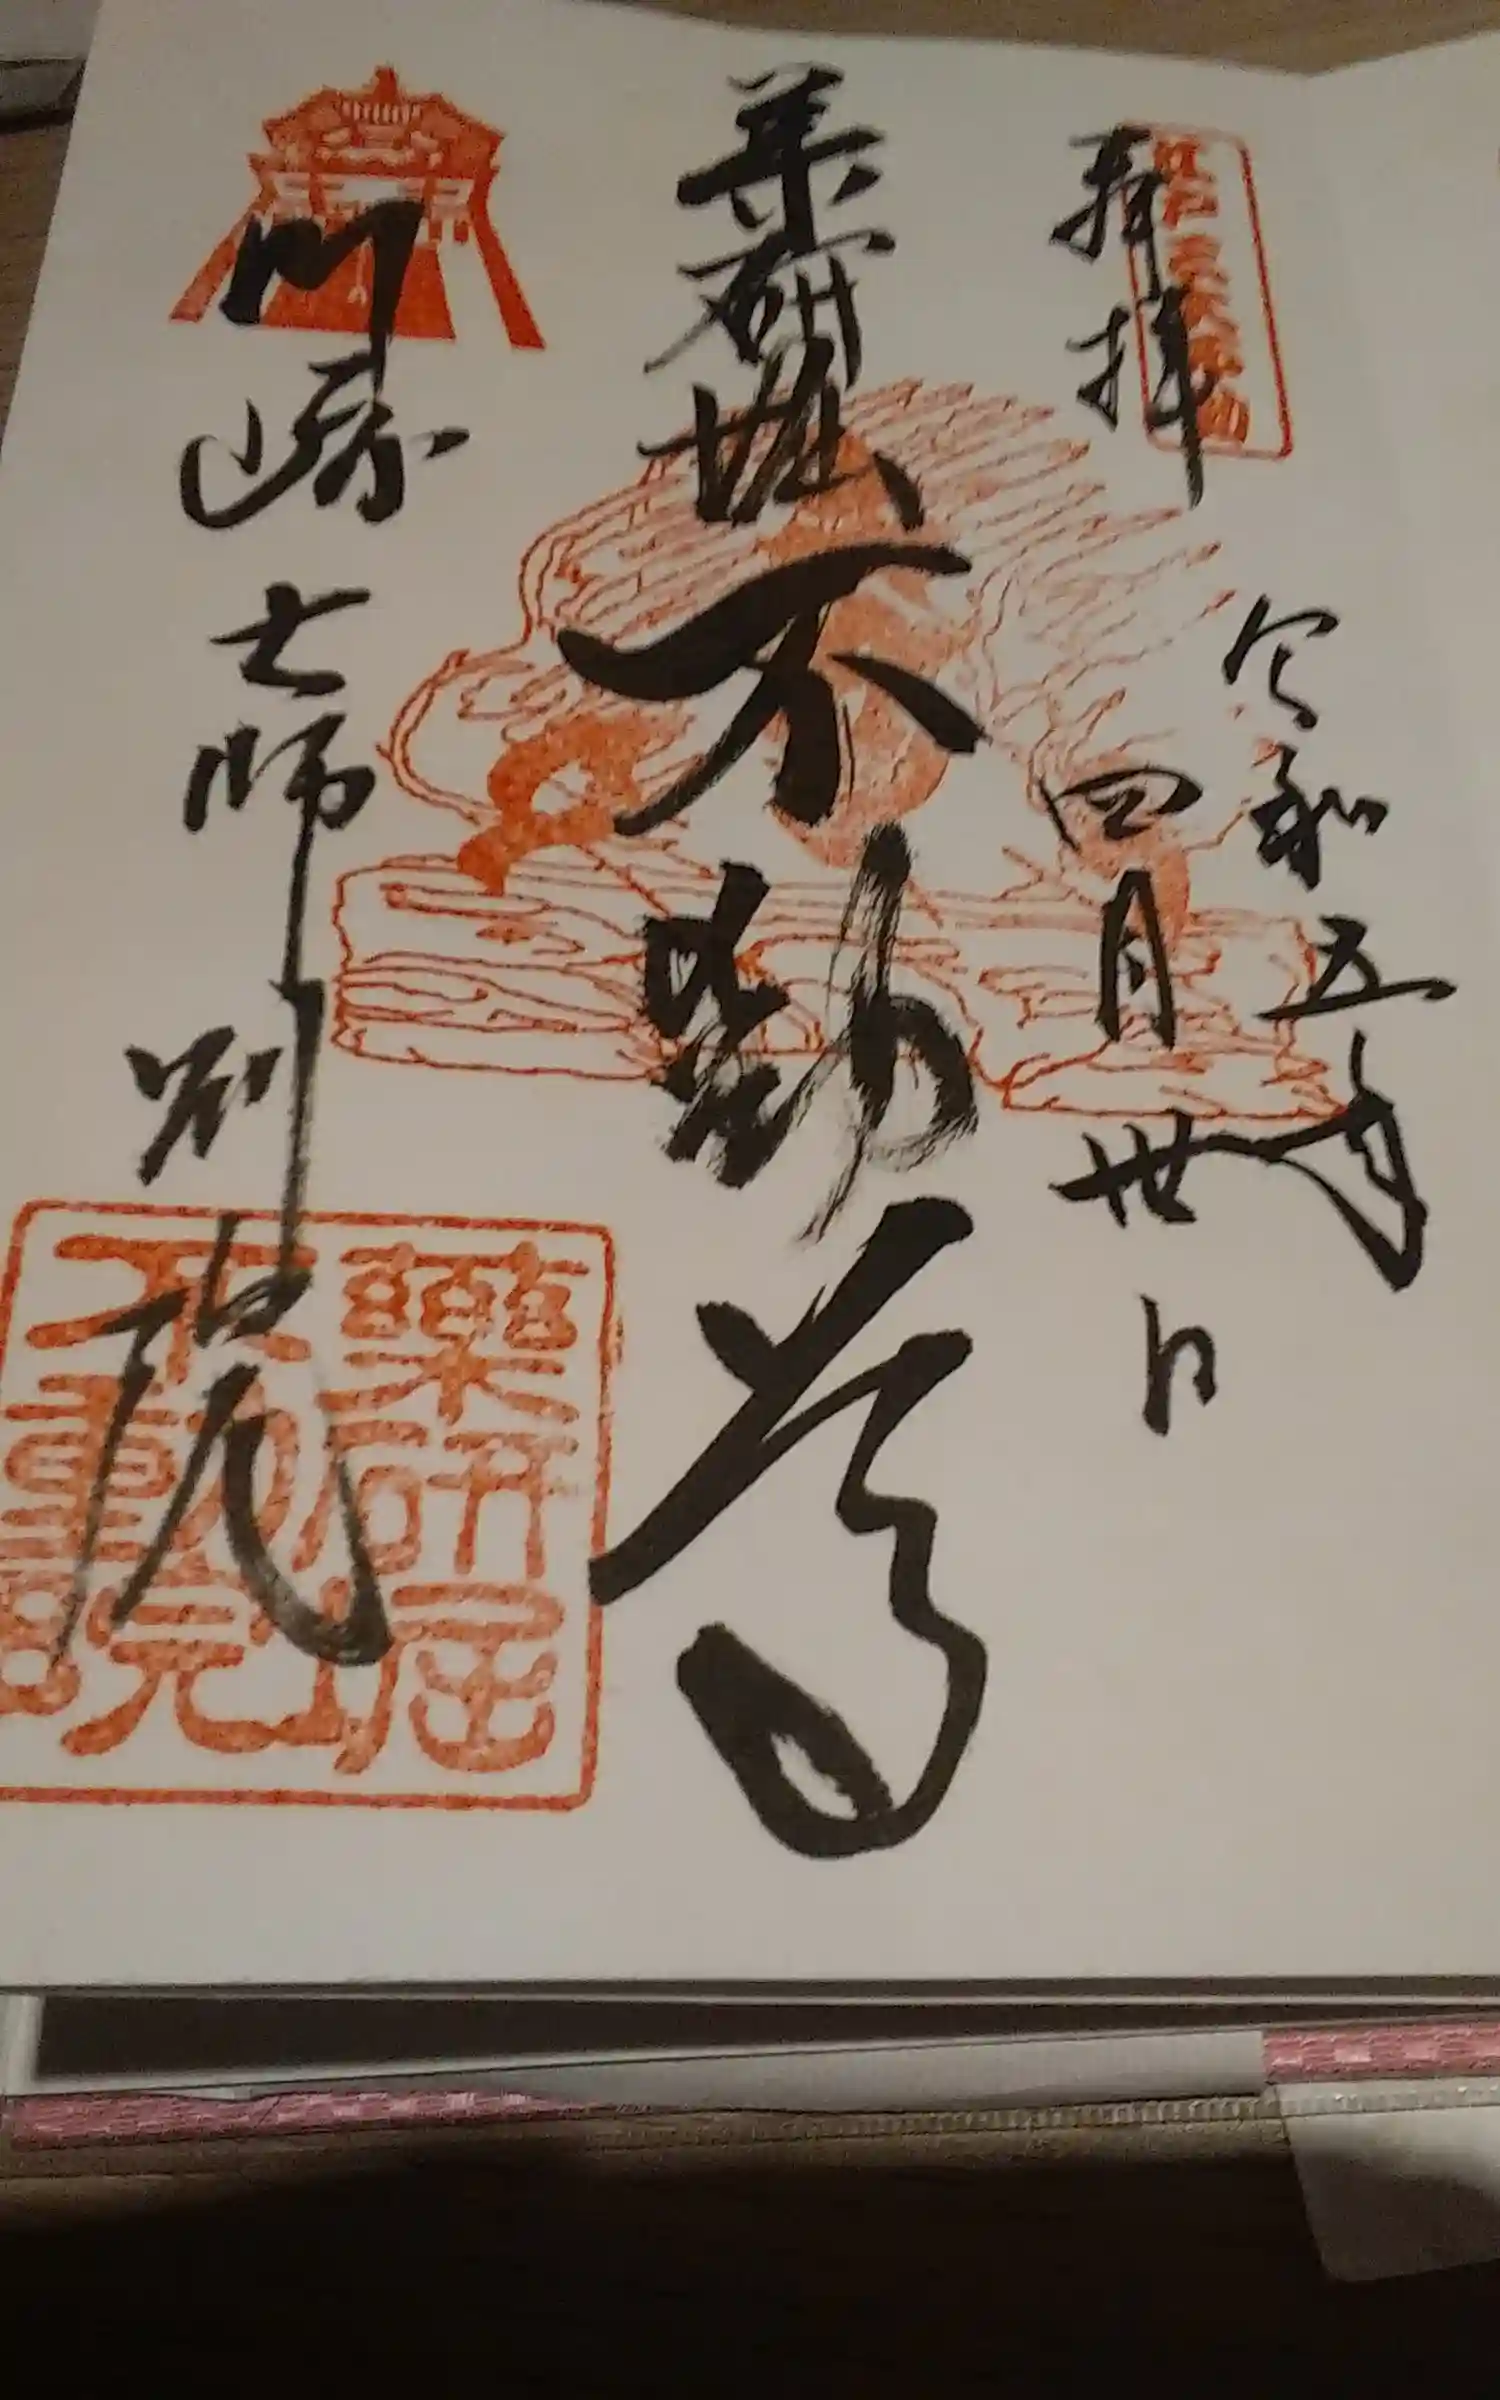 奉拝
令和五年
四月卅日
薬研堀不動尊
川崎大師別院
薬研堀
不動院